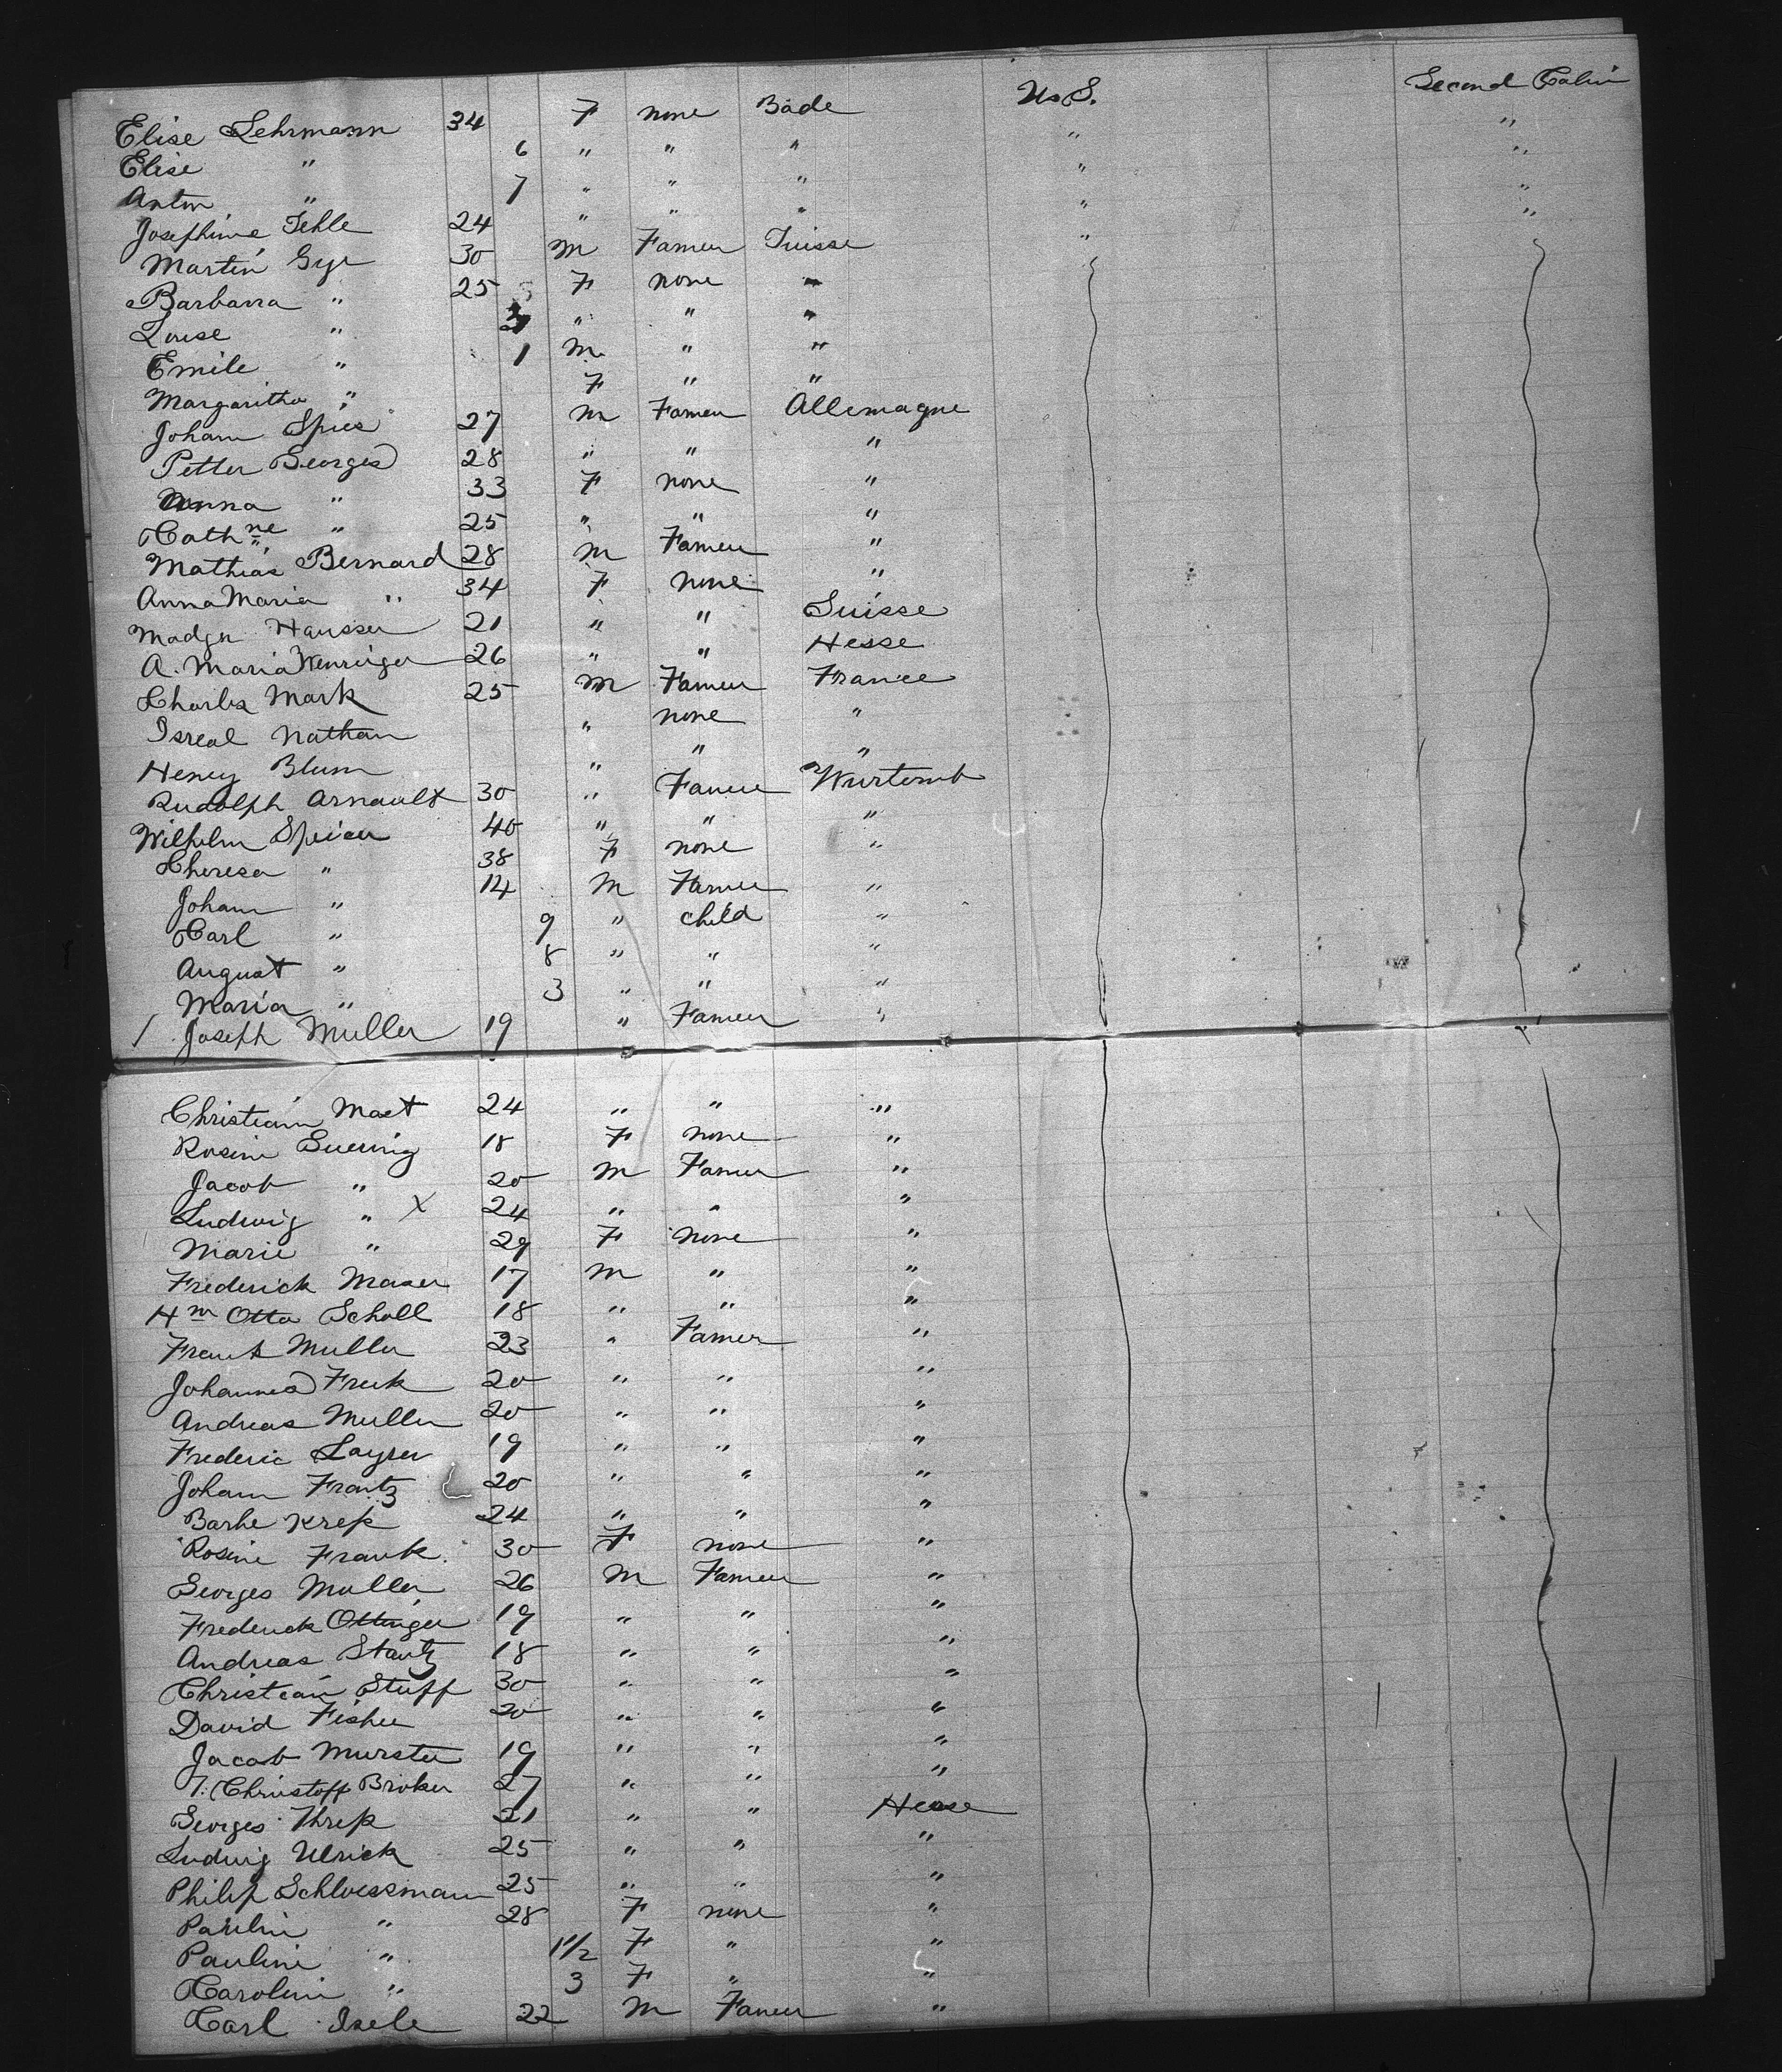 Elise Lehrmann 34 F none Bade U.S. Second Cabin
Elise " 6 " " " " "
Anton " 7 " " " " "
Josephine Fehle 24 " " " " "
Martin Gye 30 M Famer Suisse " "
Barbara " 25 F none "
Louise " 3 " " "
Emile " 1 M " "
Margaritha " F " "
Joham Spies 27 M Famer Allemagne
Petter Georges 28 " " "
Anna " 33 F none "
Cathne " 25 " " "
Mathias Bernard 28 M Famer "
Anna Maria " 34 F none "
Madgn Hausser 21 " " Suisse
A. Maria Wenreiger 26 " " Hesse
Charles Mark 25 M Famer France
Isreal Nathan " none "
Heney Blum " " "
Rudolph Arnault 30 " Famer Wurtemb
Wilhelm Speicer 40 " " "
Theresa " 38 F none "
Joham " 14 M Famer "
Carl " 9 " child "
August " 8 " " "
Maria " 3 " " "
/ Joseph Muller 19 " Famer "
Christiann Mact 24 " " "
Rosine Guering 18 F none "
Jacob " 20 M Famer "
Ludwig " X 24 " " "
Marie " 29 F none "
Frederick Maser 17 M " "
Hm Otto Scholl 18 " " "
Frank Muller 23 " Famer "
Johannes Freek 20 " " "
Andreas Muller 20 " " "
Frederic Layser 19 " " "
Joham Frantz 20 " " "
Barhe Krep 24 " " "
Rosine Frank 30 F none "
Georges Muller 26 M Famer "
Frederick Ottinger 19 " " "
Andreas Stantz 18 " " "
Christian Stuff 30 " " "
David Fisher 20 " " "
Jacob Murster 19 " " "
J. Christoff Broker 27 " " "
Georges Threp 21 " " Hesse
Ludwig Ulrick 25 " " "
Philip Schloessmann 25 " " "
Paulin " 28 F none "
Paulini " 1 1/2 F " "
Carolini " 3 F " "
Carl Isele 22 M Famer "